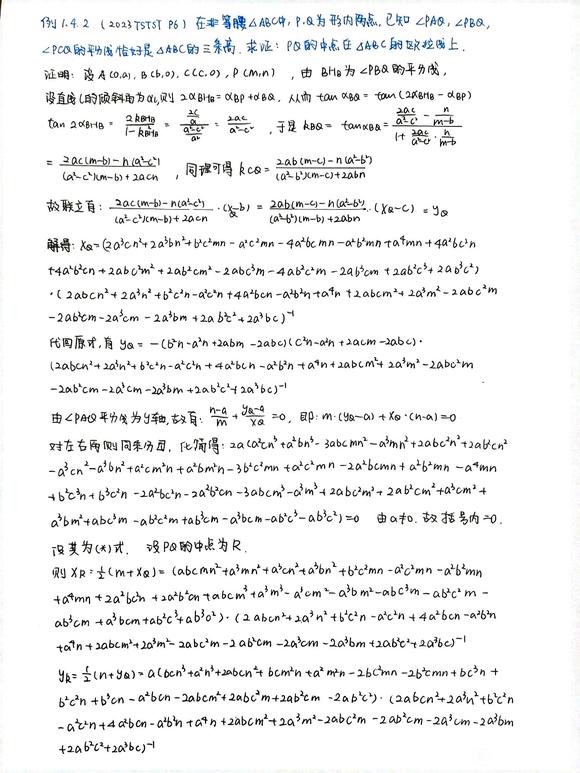 例1.4.2 (2023 TSTST P6) 在非等腰△ABC中, P,Q为形内两点, 已知∠PAQ, ∠PBQ,
∠PCQ的平分线恰好是△ABC的三条高. 求证: PQ的中点在△ABC的欧拉线上.
证明: 设 A(0,a), B(b,0), C(c,0), P(m,n), 由BHB为∠PBQ的平分线,
设直线l的倾斜角为αl, 则 2αBHB = αBP+αBQ, 从而 tan αBQ = tan(2αBHB - αBP)
tan 2αBHB = 2kBHB/(1-k²BHB) = (2c/a)/((a²-c²)/a²) = 2ac/(a²-c²), 于是 kBQ = tanαBQ = (2ac/(a²-c²) - n/(m-b))/(1+2ac/(a²-c²)·n/(m-b))
= (2ac(m-b)-n(a²-c²))/((a²-c²)(m-b)+2acn), 同理可得 kCQ = (2ab(m-c)-n(a²-b²))/((a²-b²)(m-c)+2abn)
故联立有: (2ac(m-b)-n(a²-c²))/((a²-c²)(m-b)+2acn)·(xQ-b) = (2ab(m-c)-n(a²-b²))/((a²-b²)(m-b)+2abn)·(xQ-c) = yQ
解得: xQ=(2a³cn²+2a³bn²+b²c²mn-a²c²mn-4a²bcmn-a²b²mn+a⁴mn+4a²bc²n
+4a²b²cn+2abc²m²+2ab²cm²-2abc³m-4ab²c²m-2ab³cm+2ab²c³+2ab³c²)
·(2abcn²+2a³n²+b²c²n-a²c²n+4a²bcn-a²b²n+a⁴n+2abcm²+2a³m²-2abc²m
-2ab²cm-2a³cm-2a³bm+2ab²c²+2a³bc)⁻¹
代回原式, 有 yQ = -(b²n-a²n+2abm-2abc)(c²n-a²n+2acm-2abc)·
(2abcn²+2a³n²+b²c²n-a²c²n+4a²bcn-a²b²n+a⁴n+2abcm²+2a³m²-2abc²m
-2ab²cm-2a³cm-2a³bm+2ab²c²+2a³bc)⁻¹
由∠PAQ平分线为y轴, 故有: (n-a)/m + (yQ-a)/xQ = 0, 即: m·(yQ-a)+xQ·(n-a)=0
对左右两侧同乘分母, 化简得: 2a(a²cn³+a²bn³-3abcmn²-a³mn²+2abc²n²+2ab²cn²
-a³cn²-a³bn²+a²cm²n+a²bm²n-3b²c²mn+a²c²mn-2a²bcmn+a²b²mn-a⁴mn
+b²c³n+b³c²n-2a²bc²n-2a²b²cn-3abcm³-a³m³+2abc²m²+2ab²cm²+a³cm²+
a³bm²+abc³m-ab²c²m+ab³cm-a³bcm-ab²c³-ab³c²)=0 由a≠0, 故括号内=0.
设其为(*)式. 设PQ的中点为R.
则 xR=½(m+xQ)=(abcmn²+a³mn²+a³cn²+a³bn²+b²c²mn-a²c²mn-a²b²mn
+a⁴mn+2a²bc²n+2a²b²cn+abcm³+a³m³-a³cm²-a³bm²-abc³m-ab²c²m-
ab³cm+a³bcm+ab²c³+ab³c²)·(2abcn²+2a³n²+b²c²n-a²c²n+4a²bcn-a²b²n
+a⁴n+2abcm²+2a³m²-2abc²m-2ab²cm-2a³cm-2a³bm+2ab²c²+2a³bc)⁻¹
yR=½(n+yQ)=a(bcn³+a²n³+2abcn²+bcm²n+a²m²n-2bc²mn-2b²cmn+bc³n+
b²c²n+b³cn-a²bcn-2abcm²+2abc²m+2ab²cm-2ab²c²)·(2abcn²+2a³n²+b²c²n
-a²c²n+4a²bcn-a²b²n+a⁴n+2abcm²+2a³m²-2abc²m-2ab²cm-2a³cm-2a³bm
+2ab²c²+2a³bc)⁻¹